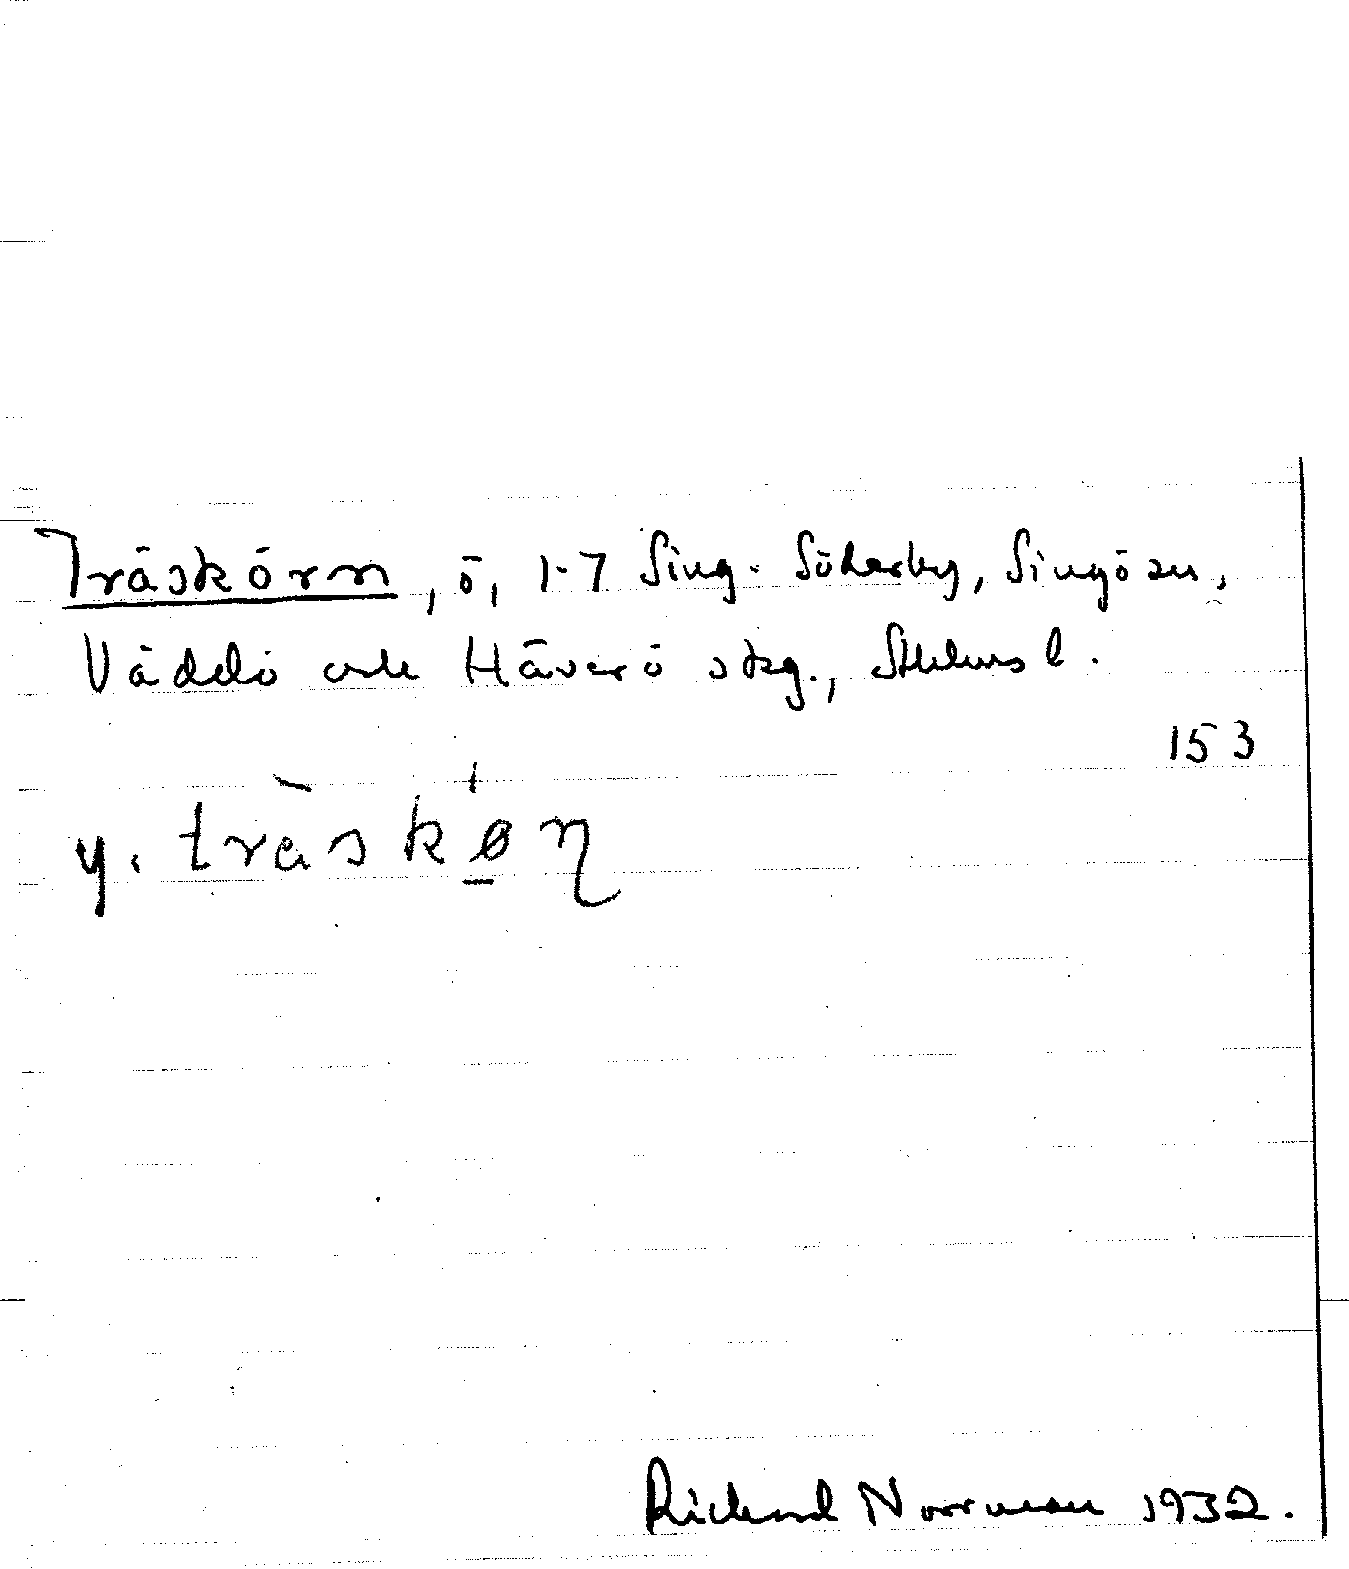 Träskörn, ö, 1-7 Sing-Söderby, Singö sn,
Väddö och Häverö skg., Sthlms l.
153
y. träskøn
Rickard Norrman 1932.